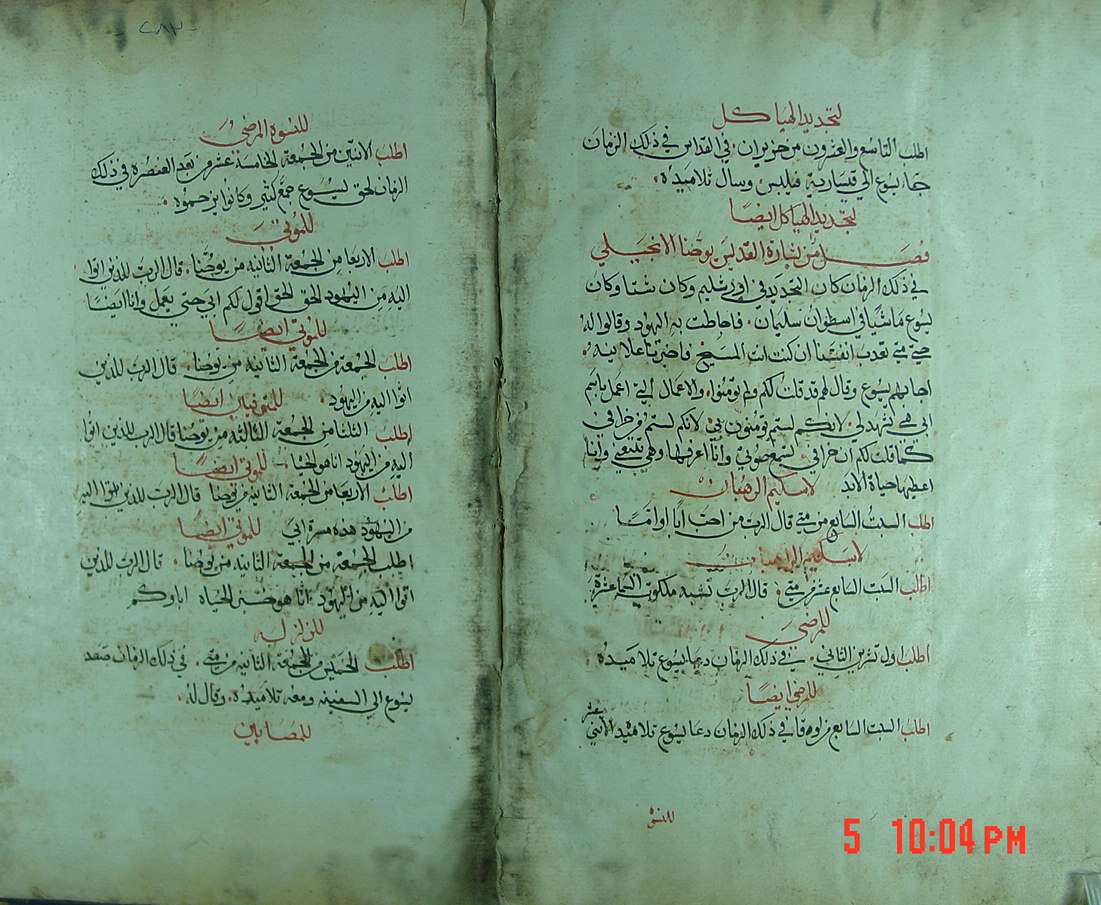 لتجديد الهياكل
اطلب التاسع والعشرون من حزيران. في القداس في ذلك الزمان
جا يسوع الي قيسارية فيلبس وسال تلاميذه.
لتجديد الهياكل ايضًا
فصل من بشارة القديس يوحنا الانجيلي
في ذلك الزمان كان التجديد في اورشليم وكان شتا وكان
يسوع ماشيا في اسطوان سليمان. فاحاطت به اليهود وقالوا له
حتي متي تعذب انفسنا ان كنت انت المسيح فاخبرنا علانية.
اجابهم يسوع وقال لهم قد قلت لكم ولم تومنوا. والاعمال التي اعمل باسم
ابي هي تشهد لي. لاكنكم لستم تومنون بي. لانكم لستم من خرافي
كما قلت لكم ان خرافي تسمع صوتي وانا اعرفها وهي تتبعني وانا
اعطيها حياة الابد لاسكيم الرهبان
اطلب السبت السابع من متي قال الرب من احب ابًا او امًا
لاسكيم الرهبان
اطلب السبت السابع عشر من متي. قال الرب تشبه ملكوت السما عشرة
للمرضي
اطلب اول تشرين الثاني. في ذلك الزمان دعا يسوع تلاميذه
للمرضي ايضًا
اطلب السبت السابع من لوقا في ذلك الزمان دعا يسوع تلاميذه الاثني عشر
للنسوة
-٢٨٣-
للنسوة المرضي
اطلب الاثنين من الجمعة الخامسة عشر من بعد العنصرة في ذلك
الزمان لحق يسوع جمع كثير وكانوا يزحموه.
للموتي
اطلب الاربعا من الجمعة الثانية من يوحنا. قال الرب للذين اتوا
اليه من اليهود الحق الحق اقول لكم ابي حتي يعمل وانا ايضًا
للموتي ايضًا
اطلب الجمعة من الجمعة الثانية من يوحنا. قال الرب للذين
اتوا اليه من اليهود. للمتوفيين ايضًا
اطلب الثلثا من الجمعة الثالثة من يوحنا قال الرب للذين اتوا
اليه من اليهود انا هو الحياة. للموتي ايضًا
اطلب الاربعا من الجمعة الثانية من يوحنا قال الرب للذين اتوا اليه
من اليهود هذه مسرة ابي للموتي ايضًا
اطلب الجمعة من الجمعة الثانية من يوحنا. قال الرب للذين
اتوا اليه من اليهود. انا هو خبز الحياه اباوكم
للزلزلة
اطلب الخميس من الجمعة الثانية من متي. في ذلك الزمان صعد
يسوع الي السفينه ومعه تلاميذه. وقال له.
للمصابين
5 10:04 PM